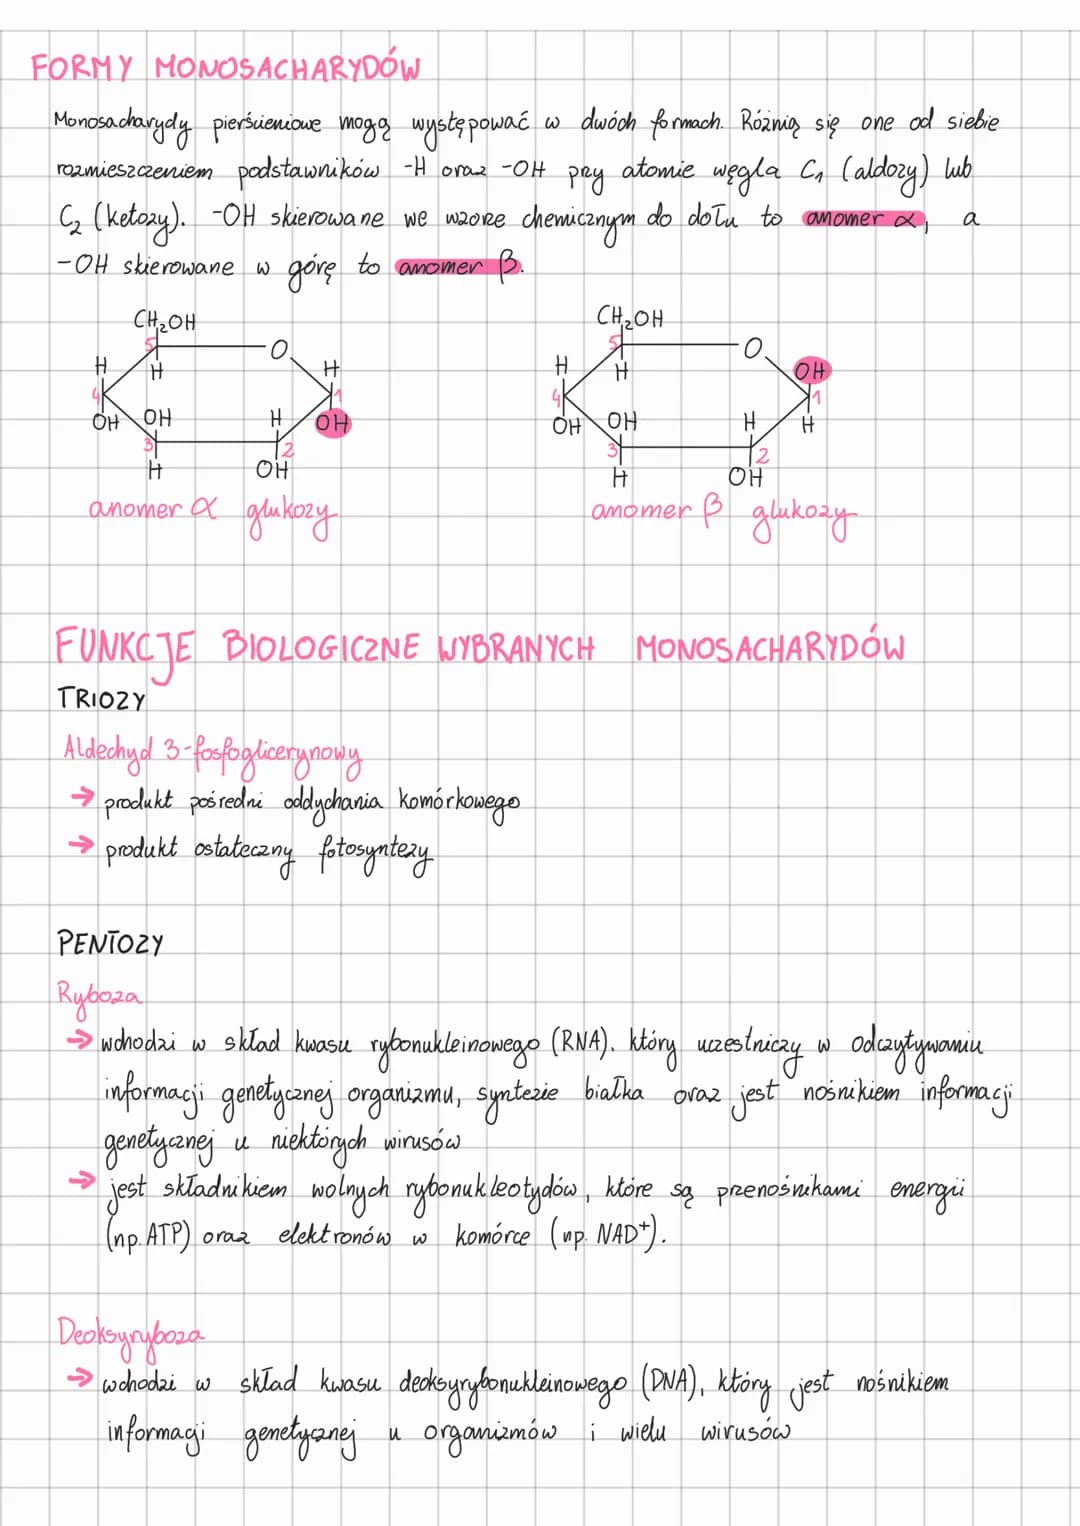 FORMY MONOSACHARYDÓW
Monosacharydy pierścieniowe mogą występować w dwóch formach. Różnią się one od siebie
rozmieszczeniem podstawników -H oraz -OH pry atomie węgla C₁ (aldozy) lub
C₂ (ketozy). -OH skierowane we wzorze chemicznym do dołu to anomer α, a
-OH skierowane w górę to anomer β.
CH₂OH CH₂OH
5 O 5 O
H H H H H OH
4 1 4 1
OH OH H OH OH OH H H
3 2 3 2
H OH H OH
anomer α glukozy anomer β glukozy
FUNKCJE BIOLOGICZNE WYBRANYCH MONOSACHARYDÓW
TRIOZY
Aldechyd 3-fosfoglicerynowy
→ produkt pośredni oddychania komórkowego
→ produkt ostateczny fotosyntezy
PENTOZY
Ryboza
→ wchodzi w skład kwasu rybonukleinowego (RNA). który uczestniczy w odczytywaniu
informacji genetycznej organizmu, syntezie białka oraz jest nośnikiem informacji
genetycznej u niektórych wirusów
→ jest składnikiem wolnych rybonukleotydów, które są przenośnikami energii
(np. ATP) oraz elektronów w komórce (np. NAD⁺).
Deoksyryboza
→ wchodzi w skład kwasu deoksyrybonukleinowego (DNA), który jest nośnikiem
informacji genetycznej u organizmów i wielu wirusów